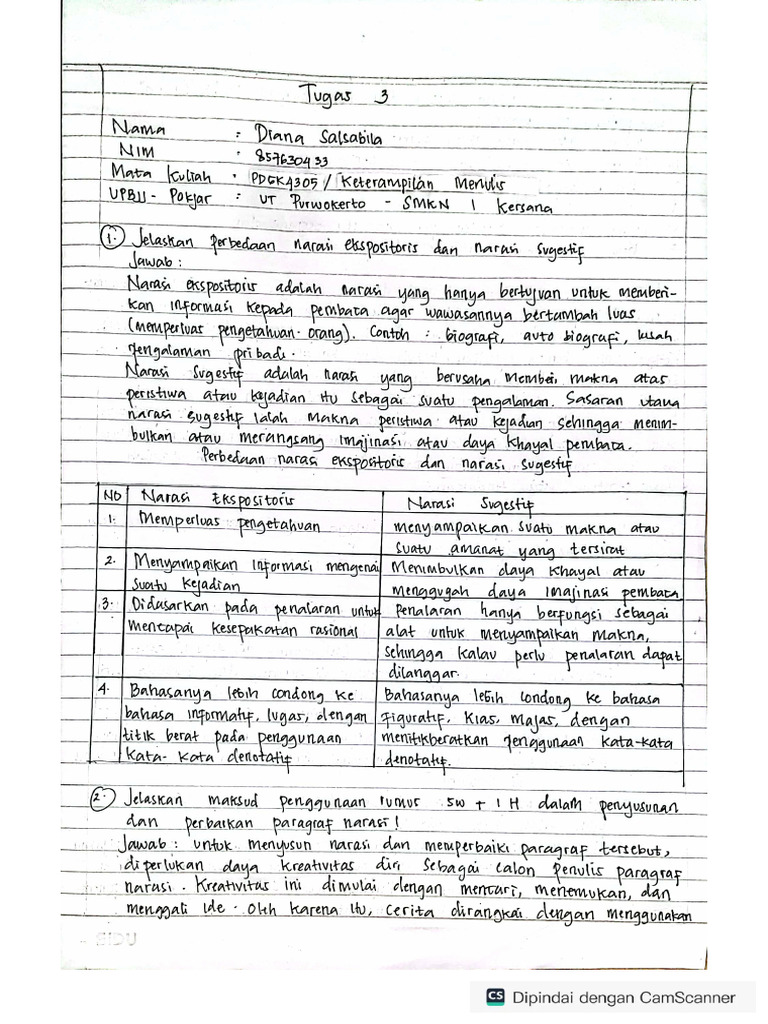 Tugas 3
Nama : Diana Salsabila
NIM : 857630433
Mata Kuliah : PDGK4305 / Keterampilan Menulis
UPBJJ - Pokjar : UT Purwokerto - SMKN 1 Kersana
1. Jelaskan perbedaan narasi ekspositoris dan narasi sugestif
Jawab :
Narasi ekspositoris adalah narasi yang hanya bertujuan untuk memberi-
kan informasi kepada pembaca agar wawasannya bertambah luas
(memperluas pengetahuan orang). Contoh : biografi, auto biografi, kisah
pengalaman pribadi.
Narasi Sugestif adalah narasi yang berusaha memberi makna atas
peristiwa atau kejadian itu sebagai suatu pengalaman. Sasaran utama
narasi sugestif ialah makna peristiwa atau kejadian sehingga menim-
bulkan atau merangsang imajinasi atau daya khayal pembaca.
Perbedaan narasi ekspositoris dan narasi sugestif
NO Narasi Ekspositoris Narasi Sugestif
1. Memperluas pengetahuan menyampaikan suatu makna atau
suatu amanat yang tersirat
2. Menyampaikan informasi mengenai Menimbulkan daya khayal atau
suatu kejadian menggugah daya imajinasi pembaca
3. Didasarkan pada penalaran untuk Penalaran hanya berfungsi sebagai
mencapai kesepakatan rasional alat untuk menyampaikan makna,
sehingga kalau perlu penalaran dapat
dilanggar.
4. Bahasanya lebih condong ke Bahasanya lebih condong ke bahasa
bahasa informatif, lugas, dengan figuratif, kias, majas, dengan
titik berat pada penggunaan menitikberatkan penggunaan kata-kata
kata-kata denotatif denotatif.
2. Jelaskan maksud penggunaan rumus 5W + 1 H dalam penyusunan
dan perbaikan paragraf narasi!
Jawab : untuk menyusun narasi dan memperbaiki paragraf tersebut,
diperlukan daya kreativitas diri sebagai calon penulis paragraf
narasi. Kreativitas ini dimulai dengan mencari, menemukan, dan
menggali ide. Oleh karena itu, cerita dirangkai dengan menggunakan
SIDU
CS Dipindai dengan CamScanner